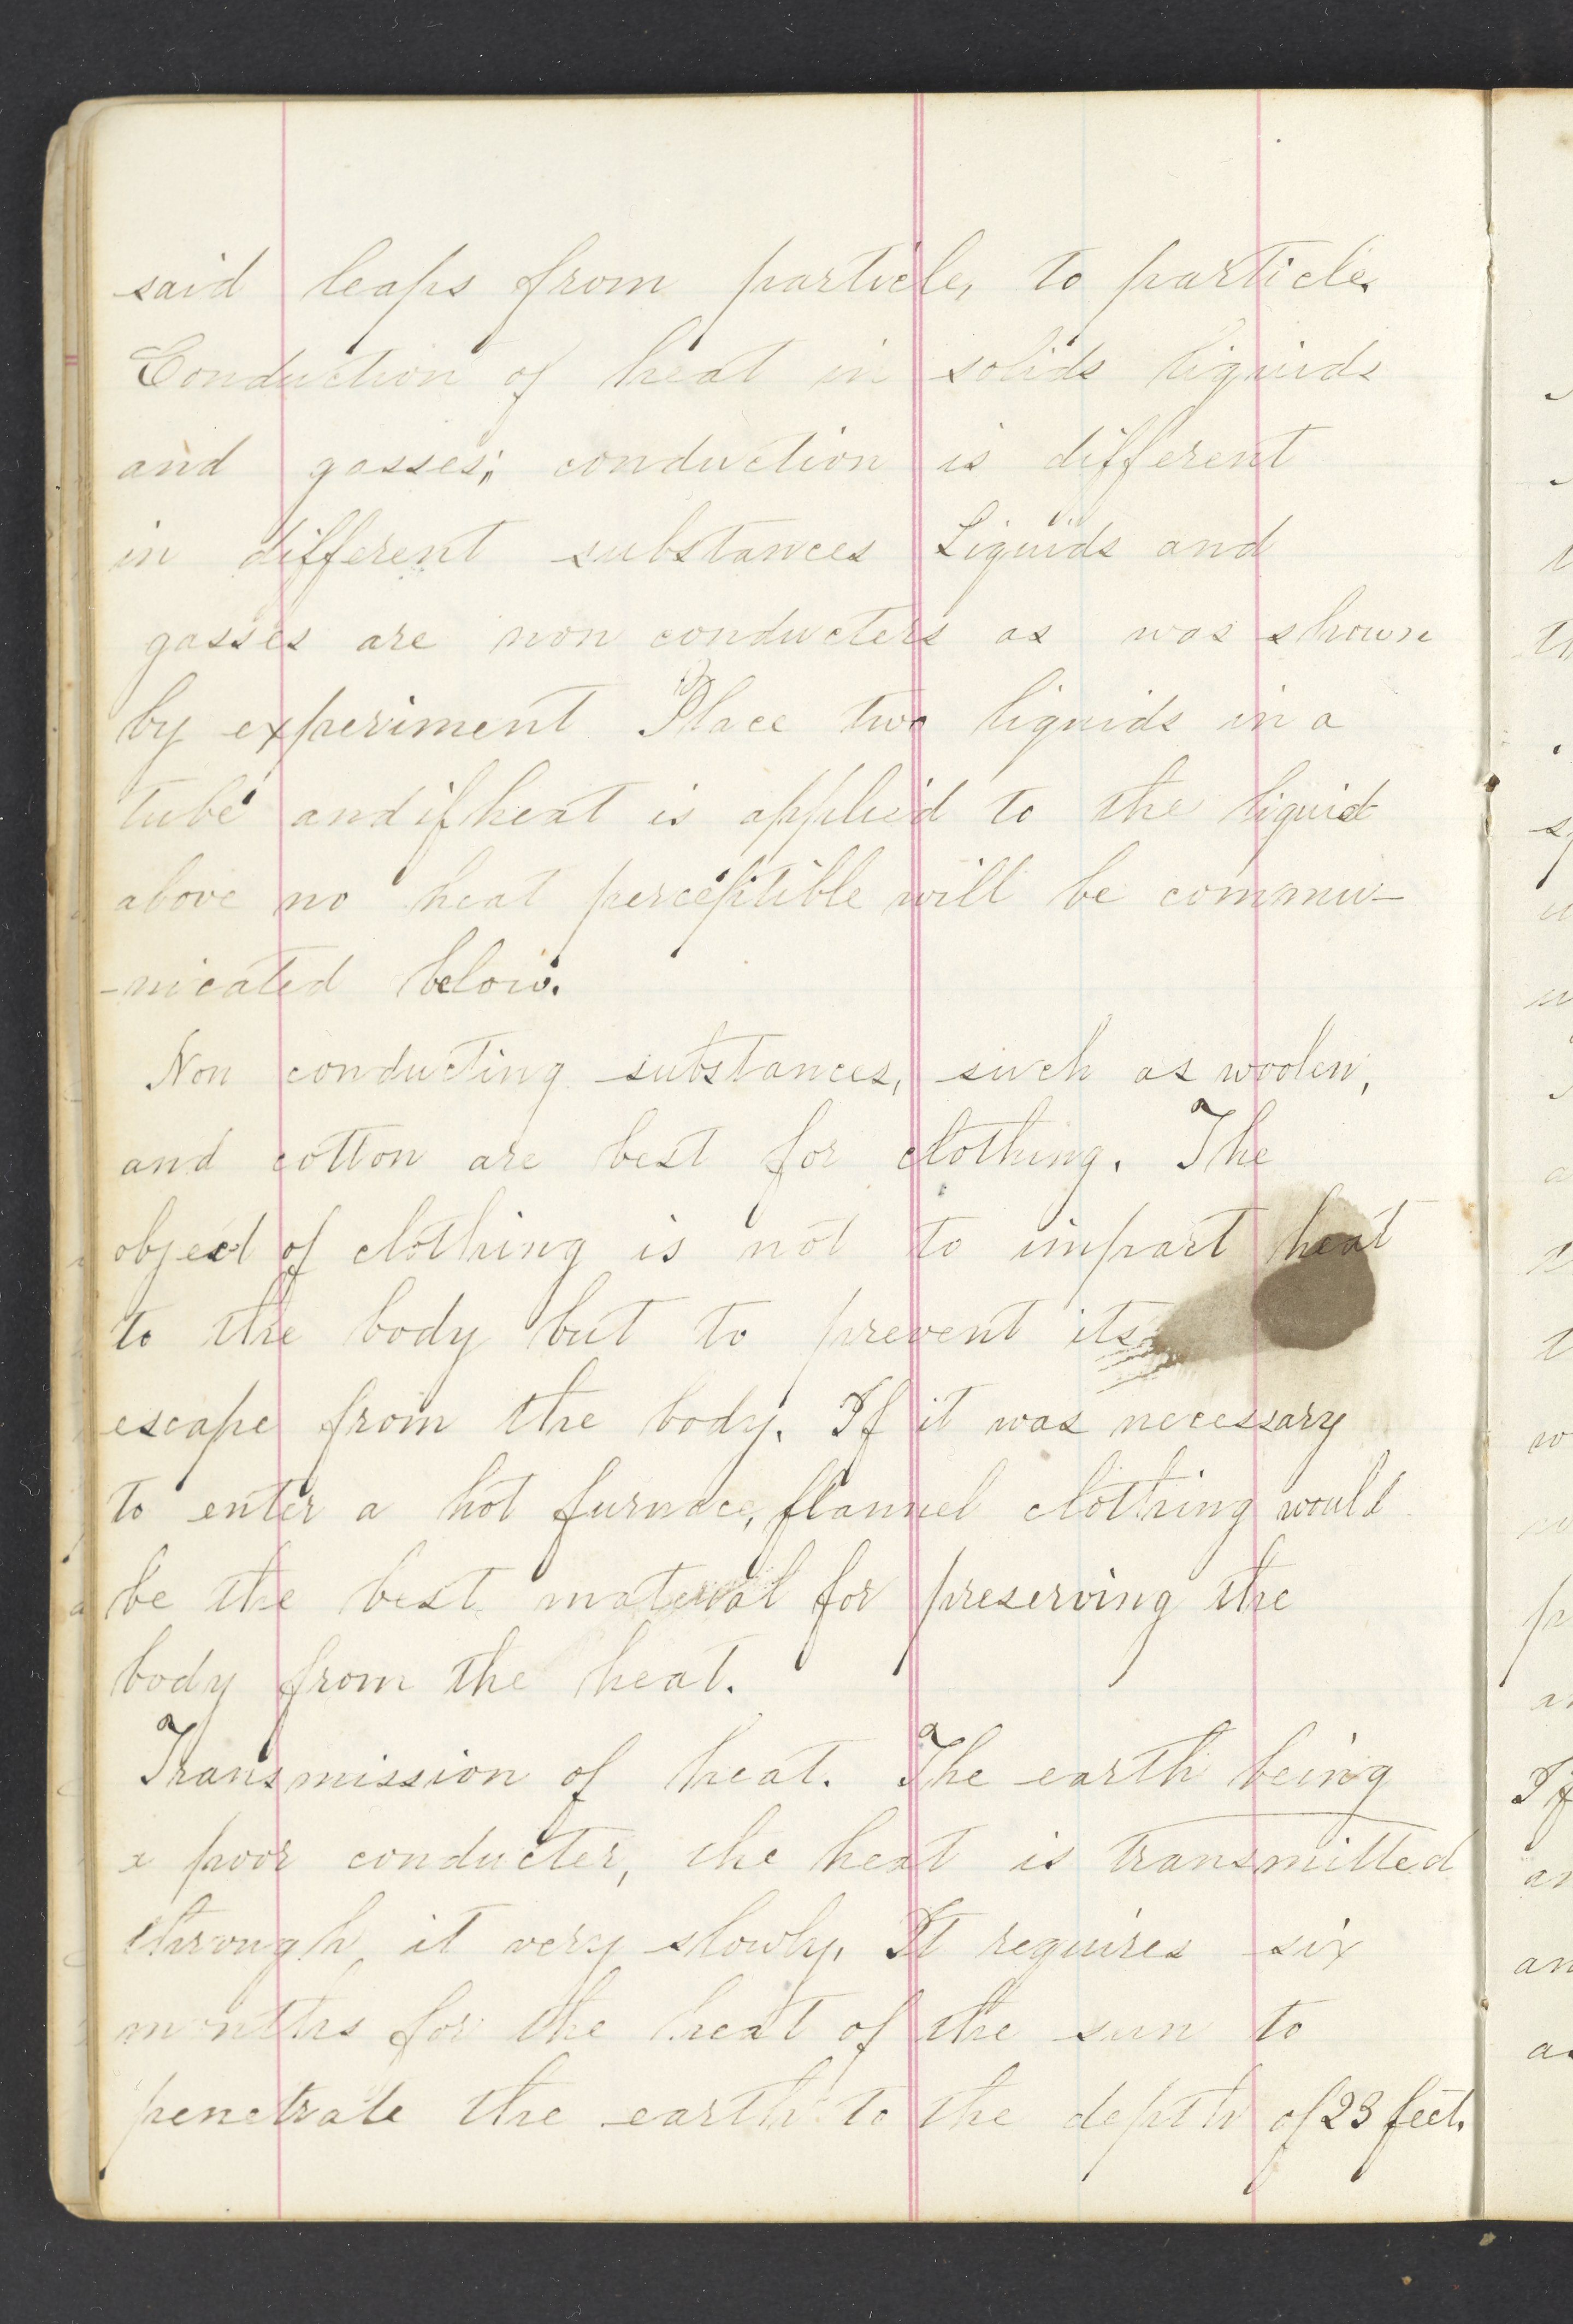 said leaps from particle, to particle.
Conduction of heat in solids liquids
and gasses; conduction is different
in different substances Liquids and
gasses are non conducters as was shown
by experiment Place two liquids in a
tube and if heat is applied to the liquid
above no heat perceptible will be commu-
-nicated below.
Non conducting substances, such as woolen,
and cotton are best for clothing. The
object of clothing is not to impart heat
to the body but to prevent its
escape from the body. If it was necessary
to enter a hot furnace, flannel clothing would
be the best material for preserving the
body from the heat.
Transmission of heat. The earth being
a poor conducter, the heat is transmitted
through it very slowly. It requires six
months for the heat of the sun to
penetrate the earth to the depth of 23 feet.